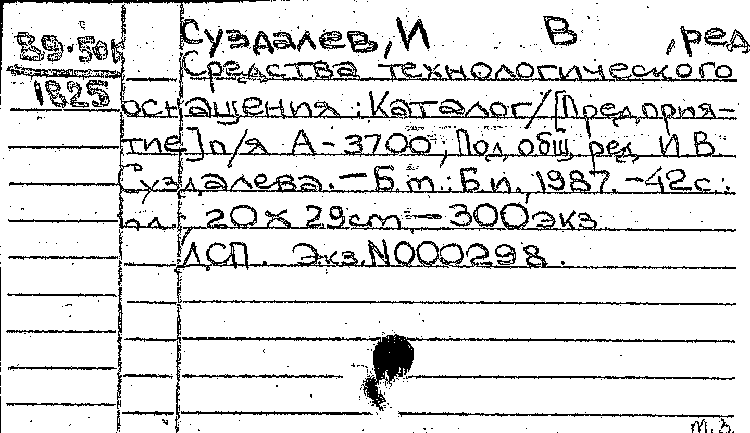 Суздалев, И В , ред
39-50к
Средства технологического
1825
оснащения : Каталог / [Предприя-
тие] п/я А-3700 ; Под общ ред И.В
Суздалева. — Б.м.: Б.и., 1987. - 42с.:
ил.; 20 х 29cm — 300экз
ДСП. Экз. N000298.
т.з.